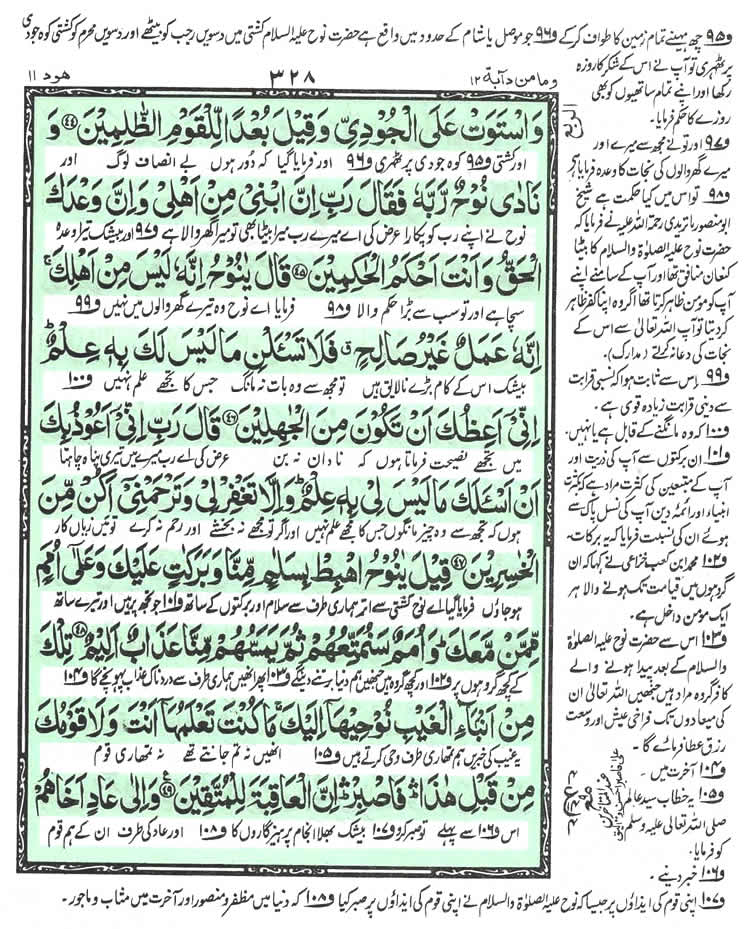 و۹۵ چھ مہینے تمام زمین کا طواف کر کے و۹۶ جو موصل یا شام کے حدود میں واقع ہے حضرت نوح علیہ السلام کشتی میں دسویں رجب کو بیٹھے اور دسویں محرم کو کشتی کوہ جودی
پر ٹھہری تو آپ نے اس کے شکر کا روزہ
رکھا اور اپنے تمام ساتھیوں کو بھی
روزے کا حکم فرمایا۔
و۹۷ اور تو نے مجھ سے میرے اور
میرے گھر والوں کی نجات کا وعدہ فرمایا
و۹۸ تو اس میں کیا حکمت ہے شیخ
ابو منصور ماتریدی رحمۃ اللہ علیہ نے فرمایا کہ
حضرت نوح علیہ الصلوٰۃ والسلام کا بیٹا
کنعان منافق تھا اور آپ کے سامنے اپنے
آپ کو مؤمن ظاہر کرتا تھا اگر وہ اپنا کفر ظاہر
کر دیتا تو آپ اللہ تعالیٰ سے اس کے
نجات کی دعا نہ کرتے (مدارک)۔
و۹۹ اس سے ثابت ہوا کہ نسبی قرابت
سے دینی قرابت زیادہ قوی ہے۔
و۱۰۰ کہ وہ مانگنے کے قابل ہے یا نہیں۔
و۱۰۱ ان برکتوں سے آپ کی ذریت اور
آپ کے متبعین کی کثرت مراد ہے کہ بکثرت
انبیاء اور ائمہ دین آپ کی نسل پاک سے
ہوئے ان کی نسبت فرمایا کہ یہ برکات۔
و۱۰۲ محمد ابن کعب خزاعی نے کہا کہ ان
گروہوں میں قیامت تک ہونے والا ہر
ایک مؤمن داخل ہے۔
و۱۰۳ اس سے حضرت نوح علیہ الصلوٰۃ
والسلام کے بعد پیدا ہونے والے
کافر گروہ مراد ہیں جنھیں اللہ تعالیٰ ان
کی میعادوں تک فراخی عیش اور وسعت
رزق عطا فرمائے گا۔
و۱۰۴ آخرت میں۔
و۱۰۵ یہ خطاب سید عالم
صلی اللہ تعالیٰ علیہ وسلم
کو فرمایا۔
و۱۰۶ خبر دینے۔
ومامن دآبة ۱۲ ۳۲۸ ھود ۱۱
وَاسْتَوَتْ عَلَى الْجُوْدِيِّ وَقِيْلَ بُعْدًا لِّلْقَوْمِ الظّٰلِمِيْنَ ﴿۴۴﴾ وَ
اور کشتی و۹۵ کوہ جودی پر ٹھہری و۹۶ اور فرمایا گیا کہ دور ہوں بے انصاف لوگ اور
نَادٰى نُوْحٌ رَّبَّهٗ فَقَالَ رَبِّ اِنَّ ابْنِيْ مِنْ اَهْلِيْ وَاِنَّ وَعْدَكَ
نوح نے اپنے رب کو پکارا عرض کی اے میرے رب میرا بیٹا بھی تو میرا گھر والا ہے و۹۷ اور بیشک تیرا وعدہ
الْحَقُّ وَاَنْتَ اَحْكَمُ الْحٰكِمِيْنَ ﴿۴۵﴾ قَالَ يٰنُوْحُ اِنَّهٗ لَيْسَ مِنْ اَهْلِكَ ۚ
سچا ہے اور تو سب سے بڑا حکم والا و۹۸ فرمایا اے نوح وہ تیرے گھر والوں میں نہیں و۹۹
اِنَّهٗ عَمَلٌ غَيْرُ صَالِحٍ ۖ فَلَا تَسْـَٔلْنِ مَا لَيْسَ لَكَ بِهٖ عِلْمٌ ؕ
بیشک اس کے کام بڑے نالایق ہیں تو مجھ سے وہ بات نہ مانگ جس کا تجھے علم نہیں و۱۰۰
اِنِّيْ اَعِظُكَ اَنْ تَكُوْنَ مِنَ الْجٰهِلِيْنَ ﴿۴۶﴾ قَالَ رَبِّ اِنِّيْ اَعُوْذُ بِكَ
میں تجھے نصیحت فرماتا ہوں کہ نادان نہ بن عرض کی اے رب میرے میں تیری پناہ چاہتا
اَنْ اَسْـَٔلَكَ مَا لَيْسَ لِيْ بِهٖ عِلْمٌ ؕ وَاِلَّا تَغْفِرْ لِيْ وَتَرْحَمْنِيْ اَكُنْ مِّنَ
ہوں کہ تجھ سے وہ چیز مانگوں جس کا مجھے علم نہیں اور اگر تو مجھے نہ بخشے اور رحم نہ کرے تو میں زیاں کار
الْخٰسِرِيْنَ ﴿۴۷﴾ قِيْلَ يٰنُوْحُ اهْبِطْ بِسَلٰمٍ مِّنَّا وَبَرَكٰتٍ عَلَيْكَ وَعَلٰٓى اُمَمٍ
ہو جاؤں فرمایا گیا اے نوح کشتی سے اتر ہماری طرف سے سلام اور برکتوں کے ساتھ و۱۰۱ جو تجھ پر ہیں اور تیرے ساتھ
مِّمَّنْ مَّعَكَ ؕ وَاُمَمٌ سَنُمَتِّعُهُمْ ثُمَّ يَمَسُّهُمْ مِّنَّا عَذَابٌ اَلِيْمٌ ﴿۴۸﴾ تِلْكَ
کے کچھ گروہوں پر و۱۰۲ اور کچھ گروہ ہیں جنھیں ہم دنیا برتنے دینگے و۱۰۳ پھر انھیں ہماری طرف سے دردناک عذاب پہونچے گا و۱۰۴
مِنْ اَنْۢبَآءِ الْغَيْبِ نُوْحِيْهَآ اِلَيْكَ ۚ مَا كُنْتَ تَعْلَمُهَآ اَنْتَ وَلَا قَوْمُكَ
یہ غیب کی خبریں ہم تمھاری طرف وحی کرتے ہیں و۱۰۵ انھیں نہ تم جانتے تھے نہ تمھاری قوم
مِنْ قَبْلِ هٰذَا ۛ فَاصْبِرْ ۛ اِنَّ الْعَاقِبَةَ لِلْمُتَّقِيْنَ ﴿۴۹﴾ وَاِلٰى عَادٍ اَخَاهُمْ
اس و۱۰۶ سے پہلے تو صبر کرو و۱۰۷ بیشک بھلا انجام پرہیزگاروں کا و۱۰۸ اور عاد کی طرف ان کے ہم قوم
و۱۰۷ اپنی قوم کی ایذاؤں پر جیسا کہ نوح علیہ الصلوٰۃ والسلام نے اپنی قوم کی ایذاؤں پر صبر کیا و۱۰۸ کہ دنیا میں مظفر و منصور اور آخرت میں مثاب و ماجور۔